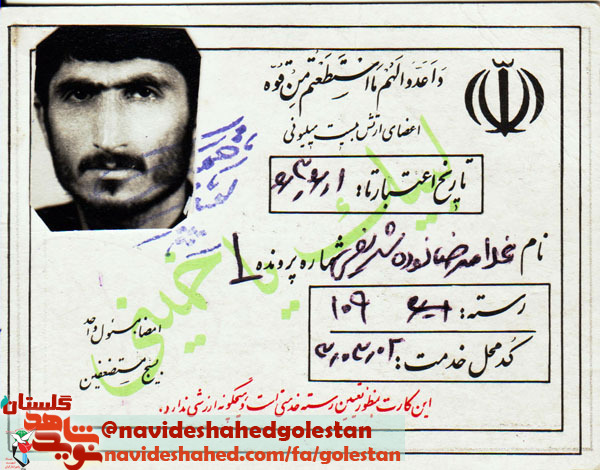 وَاَعِدّوا لَهُم مَا اسْتَطَعْتُم مِنْ قُوَّه
اعضای ارتش بیست میلیونی
تاریخ اعتبار تا:
لبیک یا خمینی
نام غلامرضا شماره پرونده 1
رسته: ۱۰۹
کد محل خدمت: ۳۰۳۰۲
امضا مسئول واحد
بسیج مستضعفین
این کارت بمنظور تعیین رسته خدمتی است و هیچگونه ارزشی ندارد.
گلستان
نوید شاهد
@navideshahedgolestan
navideshahed.com/fa/golestan